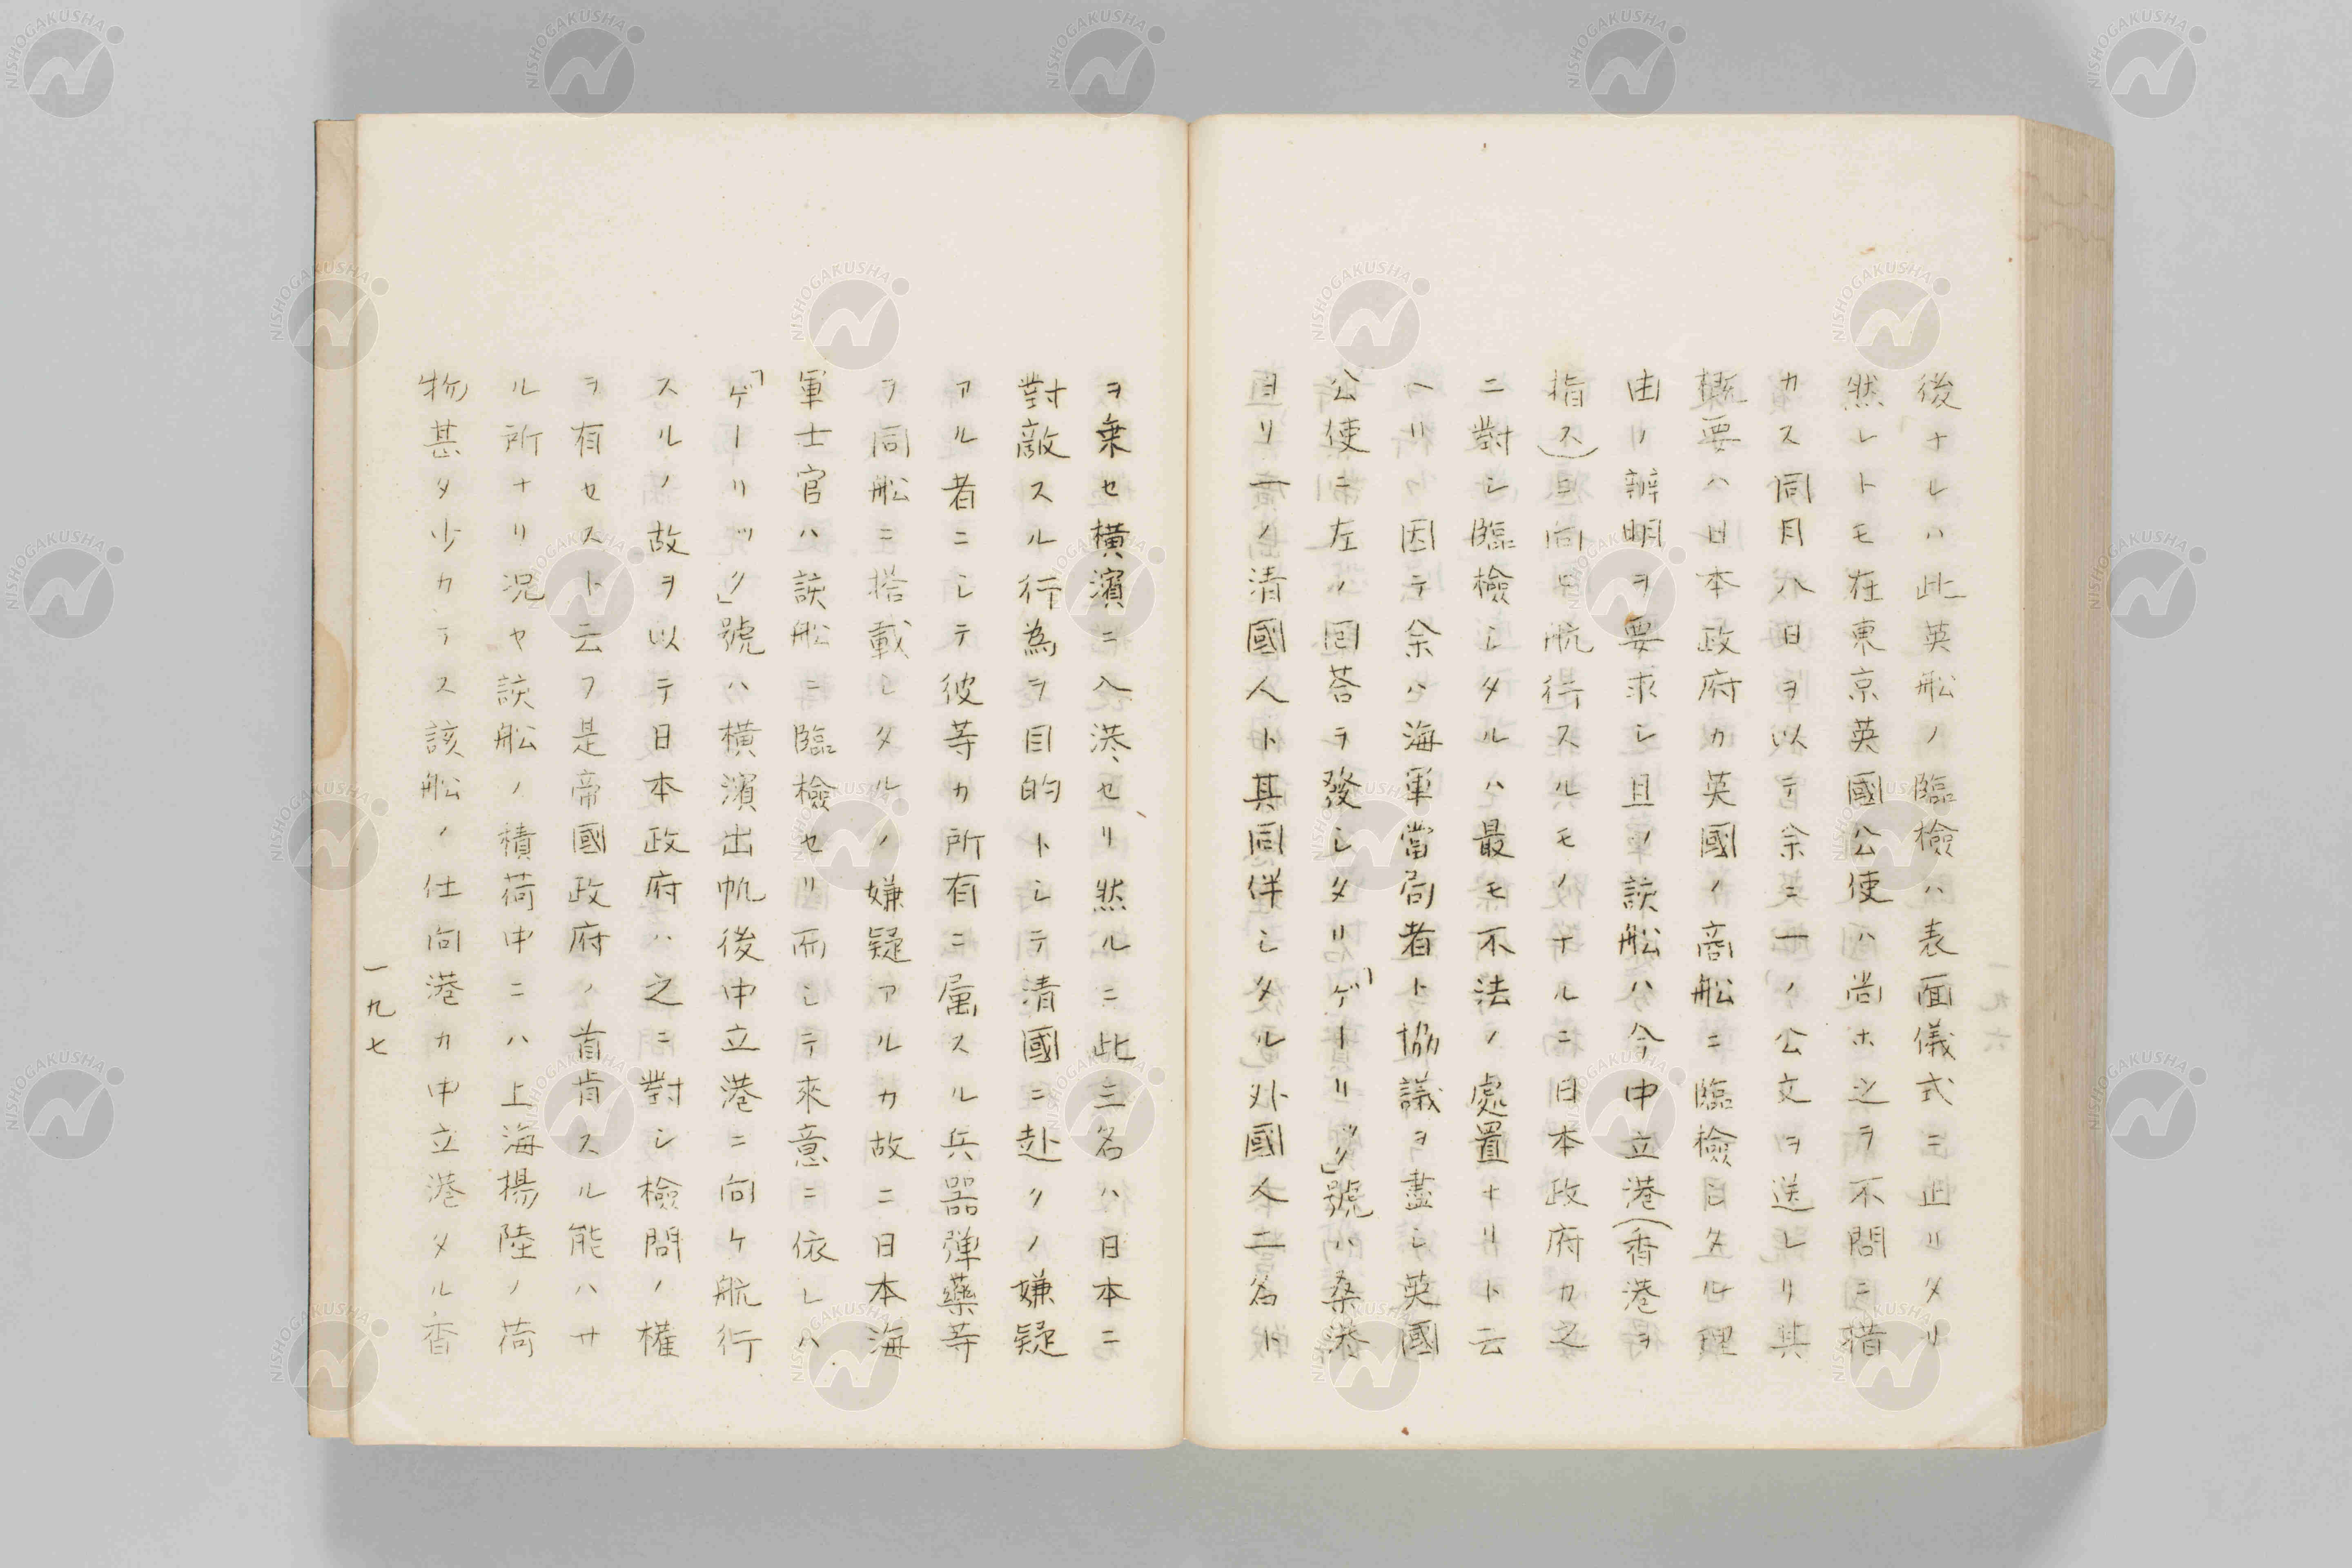 後ナレハ此英舩ノ臨檢ハ表面儀式ニ止リタリ
然レトモ在東京英國公使ハ尚ホ之ヲ不問ニ措
カス同月八日ヲ以テ余ニ一ノ公文ヲ送レリ其
概要ハ日本政府カ英國ノ商舩ニ臨檢シタル理
由ノ辨明ヲ要求シ且ノ該舩ハ今中立港(香港ヲ
指ス)ニ向ヒ航行スルモノナルニ日本政府カ之
ニ對シ臨檢シタルハ最モ不法ノ處置ナリト云
ヘリ因テ余ハ海軍當局者ト協議ヲ盡シ英國
公使ニ左ノ回荅ヲ發シタリ「ゲーリック」號ハ桑港
ヨリ一ノ清國人ト其同伴シタル外國人二名ト
ヲ乗セ横濱ニ入港セリ然ルニ此三名ハ日本ニ
對敵スル行為ヲ目的トシテ清國ニ赴クノ嫌疑
アル者ニシテ彼等カ所有ニ属スル兵器弾藥等
ヲ同舩ニ搭載シタルノ嫌疑アルカ故ニ日本海
軍士官ハ該舩ニ臨檢セリ而シテ來意ニ依レハ
「ゲーリック」號ハ横濱出帆後中立港ニ向ケ航行
スルノ故ヲ以テ日本政府ハ之ニ對シ檢問ノ權
ヲ有セスト云フ是帝國政府ノ首肯スル能ハサ
ル所ナリ況ヤ該舩ノ積荷中ニハ上海揚陸ノ荷
物甚タ少カラス該舩ノ仕向港カ中立港タル香
一九七
NISHOGAKUSHA